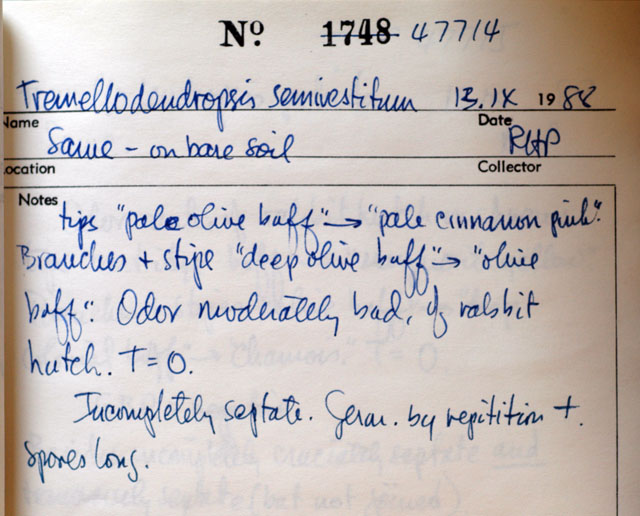 Nº 1748 47714
Tremellodendropsis semivestitum 13.IX 1988
Name Date
Same - on bare soil RHP
Location Collector
Notes
tips "pale olive buff" → "pale cinnamon pink".
Branches + stipe "deep olive buff" → "olive
buff". Odor moderately bad, of rabbit
hutch. T = 0.
Incompletely septate. Germ. by repitition +.
Spores long.